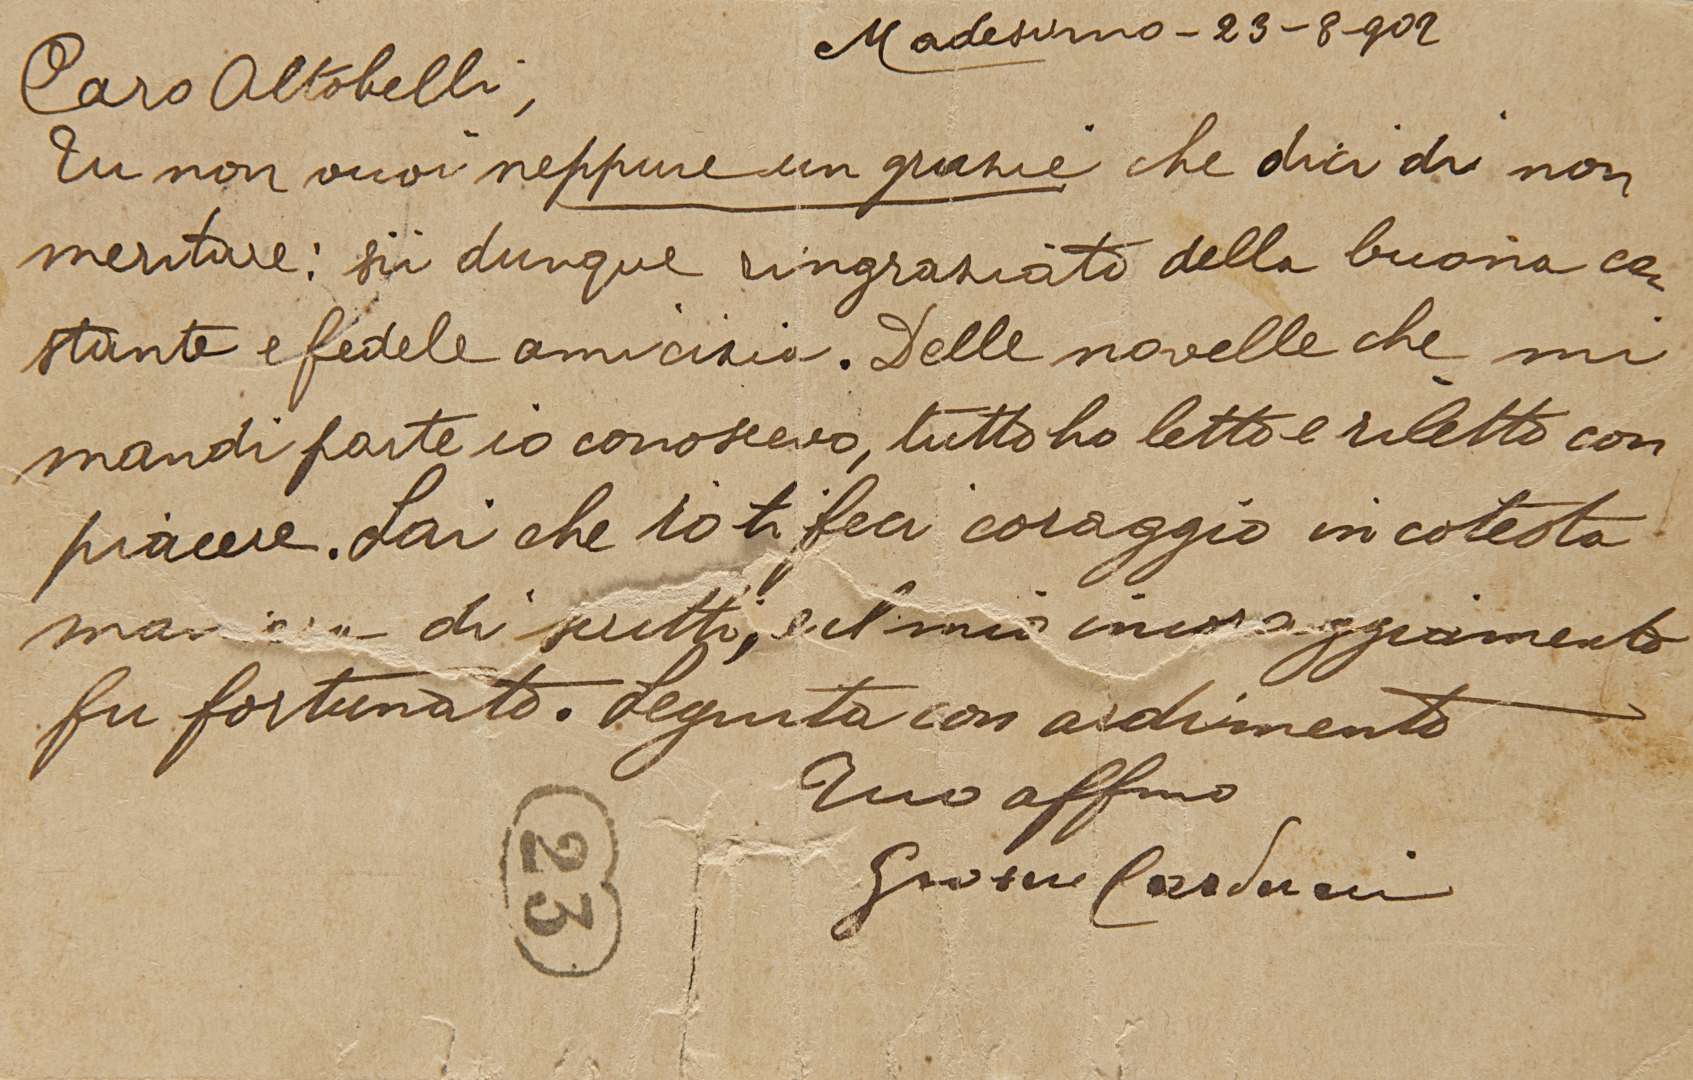 Madesimo - 23 - 8 - 902
Caro Altobelli,
Tu non vuoi neppure un grazie che dici di non
meritare: sii dunque ringraziato della buona co-
stante e fedele amicizia. Delle novelle che mi
mandi parte io conoscevo, tutto ho letto e riletto con
piacere. Sai che io ti feci coraggio in cotesta
di scritti, e il mio incoraggiamento
fu fortunato. Seguita con ardimento
Tuo affmo
Giosue Carducci
23